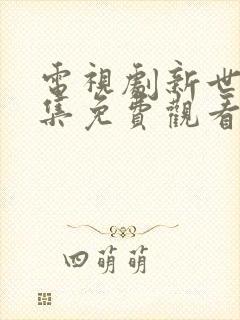 電視劇新世
集免費觀看
四萌萌